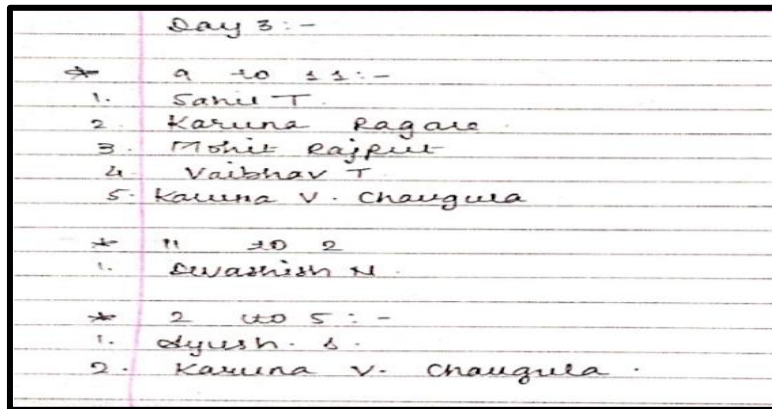 Day 3:-
* 9 to 11:-
1. Sahil T.
2. Karuna Pagare.
3. Mohit Rajput
4 Vaibhav T.
5. Karuna V. Chaugula
* 11 to 2
1. Devashish N.
* 2 to 5:-
1. Ayush. S.
2. Karuna V. Chaugula.